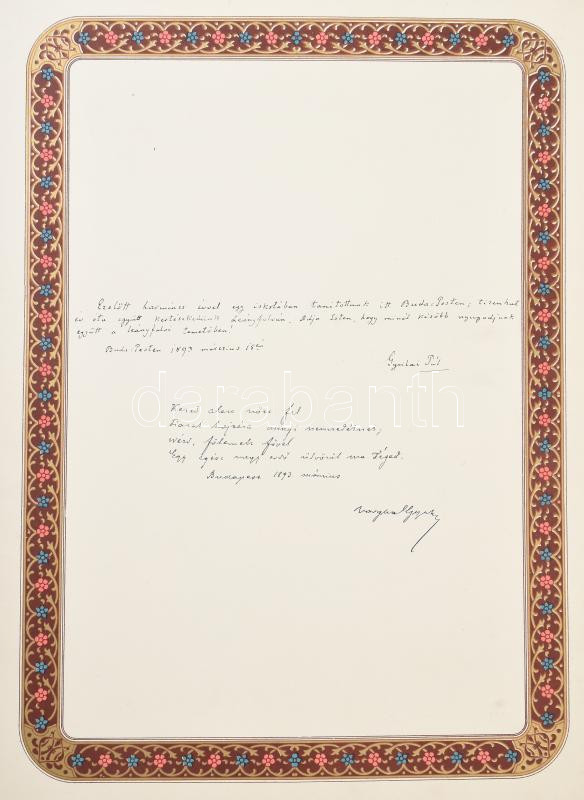 Ezelőtt harmincz évvel egy iskolában tanítottunk itt Buda-Pesten; tizenhat
év óta együtt kertészkedünk Leányfalván. Adja Isten, hogy minél később nyugodjunk
együtt a leányfalvi temetőben!
Buda-Pesten, 1893 márczius 18án
Gyulai Pál
darabanth
fát
annyi nemzedéknek;
fővel
Egy egész nagy erdő üdvözöl ma Téged.
Budapest 1893 márczius
Vargha Gyula